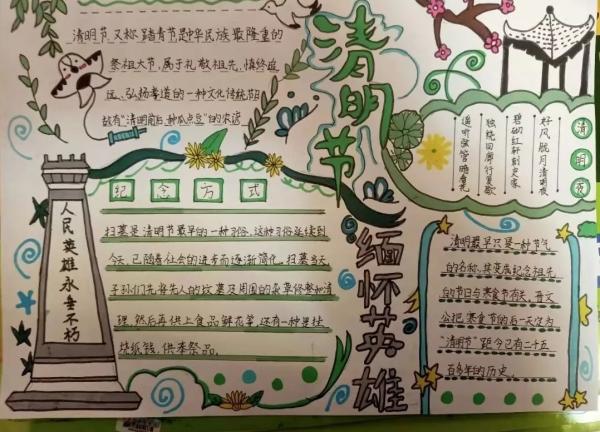 清明节,又称踏青节是中华民族最隆重的
祭祖大节,属于礼敬祖先、慎终追
远、弘扬孝道的一种文化传统节日
故有“清明前后,种瓜点豆”的农谚
清明节
清明夜
好风胧月清明夜
碧砌红轩刺史家
独绕回廊行复歇
遥听弦管暗看花
纪念方式
扫墓是清明节最早的一种习俗,这种习俗延续到
今天,已随着社会的进步而逐渐简化。扫墓当天
子孙们先将先人的坟墓及周围的杂草修整和清
理,然后再供上食品鲜花等,还有一种是
烧纸钱,供奉祭品。
人民英雄永垂不朽
缅怀英雄
清明最早只是一种节气
的名称,其变成纪念祖先
的节日与寒食节有关,晋文
公把寒食节的后一天定为
“清明节”距今已有二十五
百多年的历史。